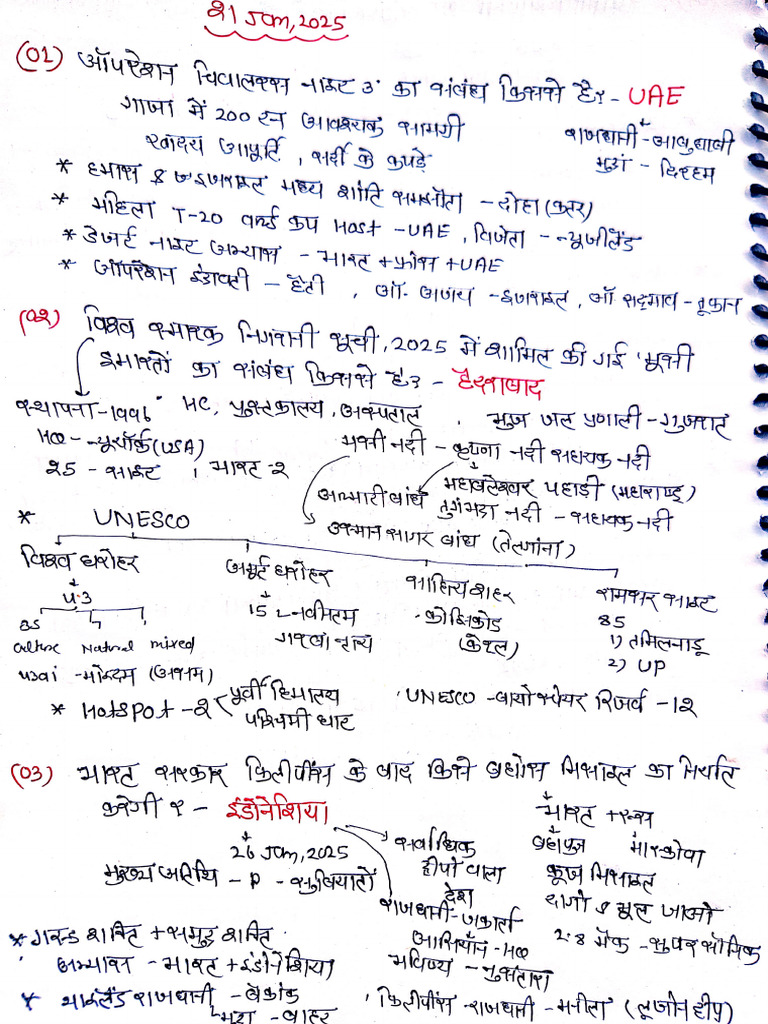 21 Jan, 2025
(01) ऑपरेशन चिवालरस नाइट 3' का संबंध किससे है? - UAE
गाजा में 200 टन आवश्यक सामग्री
राजधानी - आबुधाबी
खादय आपूर्ति, सर्दी के कपड़े
मुद्रा - दिरहम
* हमास & इजराइल मध्य शांति समझौता - दोहा (कतर)
* महिला T-20 वर्ल्ड कप Host - UAE, विजेता - न्यूजीलैंड
* डेजर्ट नाइट अभ्यास - भारत + फ्रांस + UAE
* ऑपरेशन इंद्रावती - हैती, ऑ. अजय - इजराइल, ऑ सद्भाव - तूफान
(02) विश्व स्मारक निगरानी सूची, 2025 में शामिल की गई 'मूसी
इमारतों का संबंध किससे है? - हैदराबाद
स्थापना - 1996 HC, पुस्तकालय, अस्पताल, भुज जल प्रणाली - गुजरात
HQ - न्यूयॉर्क (USA)
मूसी नदी - कृष्णा नदी सहायक नदी
25 - साइट, भारत - 2
महाबलेश्वर पहाड़ी (महाराष्ट्र)
अलमाटी बांध तुंगभद्रा नदी - सहायक नदी
उस्मान सागर बांध (तेलंगाना)
* UNESCO
विश्व धरोहर अमूर्त धरोहर साहित्य शहर रामसर साइट
43 15 - नवीनतम - कोझिकोड 85
35 गरबा नृत्य (केरल) 1) तमिलनाडू
Culture Natural mixed 2) UP
43वां - मोइदम (असम)
* HotSpot - 2 पूर्वी हिमालय
पश्चिमी घाट
UNESCO - बायोस्फेयर रिजर्व - 12
(03) भारत सरकार फिलीपींस के बाद किसे ब्रह्मोस मिसाइल का निर्यात
करेगी? - इंडोनेशिया
भारत + रूस
26 Jan, 2025
सर्वाधिक
द्वीपों वाला
देश
ब्रह्मपुत्र मास्कोवा
मुख्य अतिथि - P - सुबियांतो
क्रूज मिसाइल
राजधानी - जकार्ता
दागो & भूल जाओ
आसियान - HQ
2.8 मैक - सुपर सोनिक
भविष्य - नुसंतारा
* गरुड़ शक्ति + समुद्र शक्ति
अभ्यास - भारत + इंडोनेशिया
* थाईलैंड राजधानी - बैंकॉक
मुद्रा - बाहट
फिलीपींस - राजधानी - मनीला (लूजोन द्वीप)